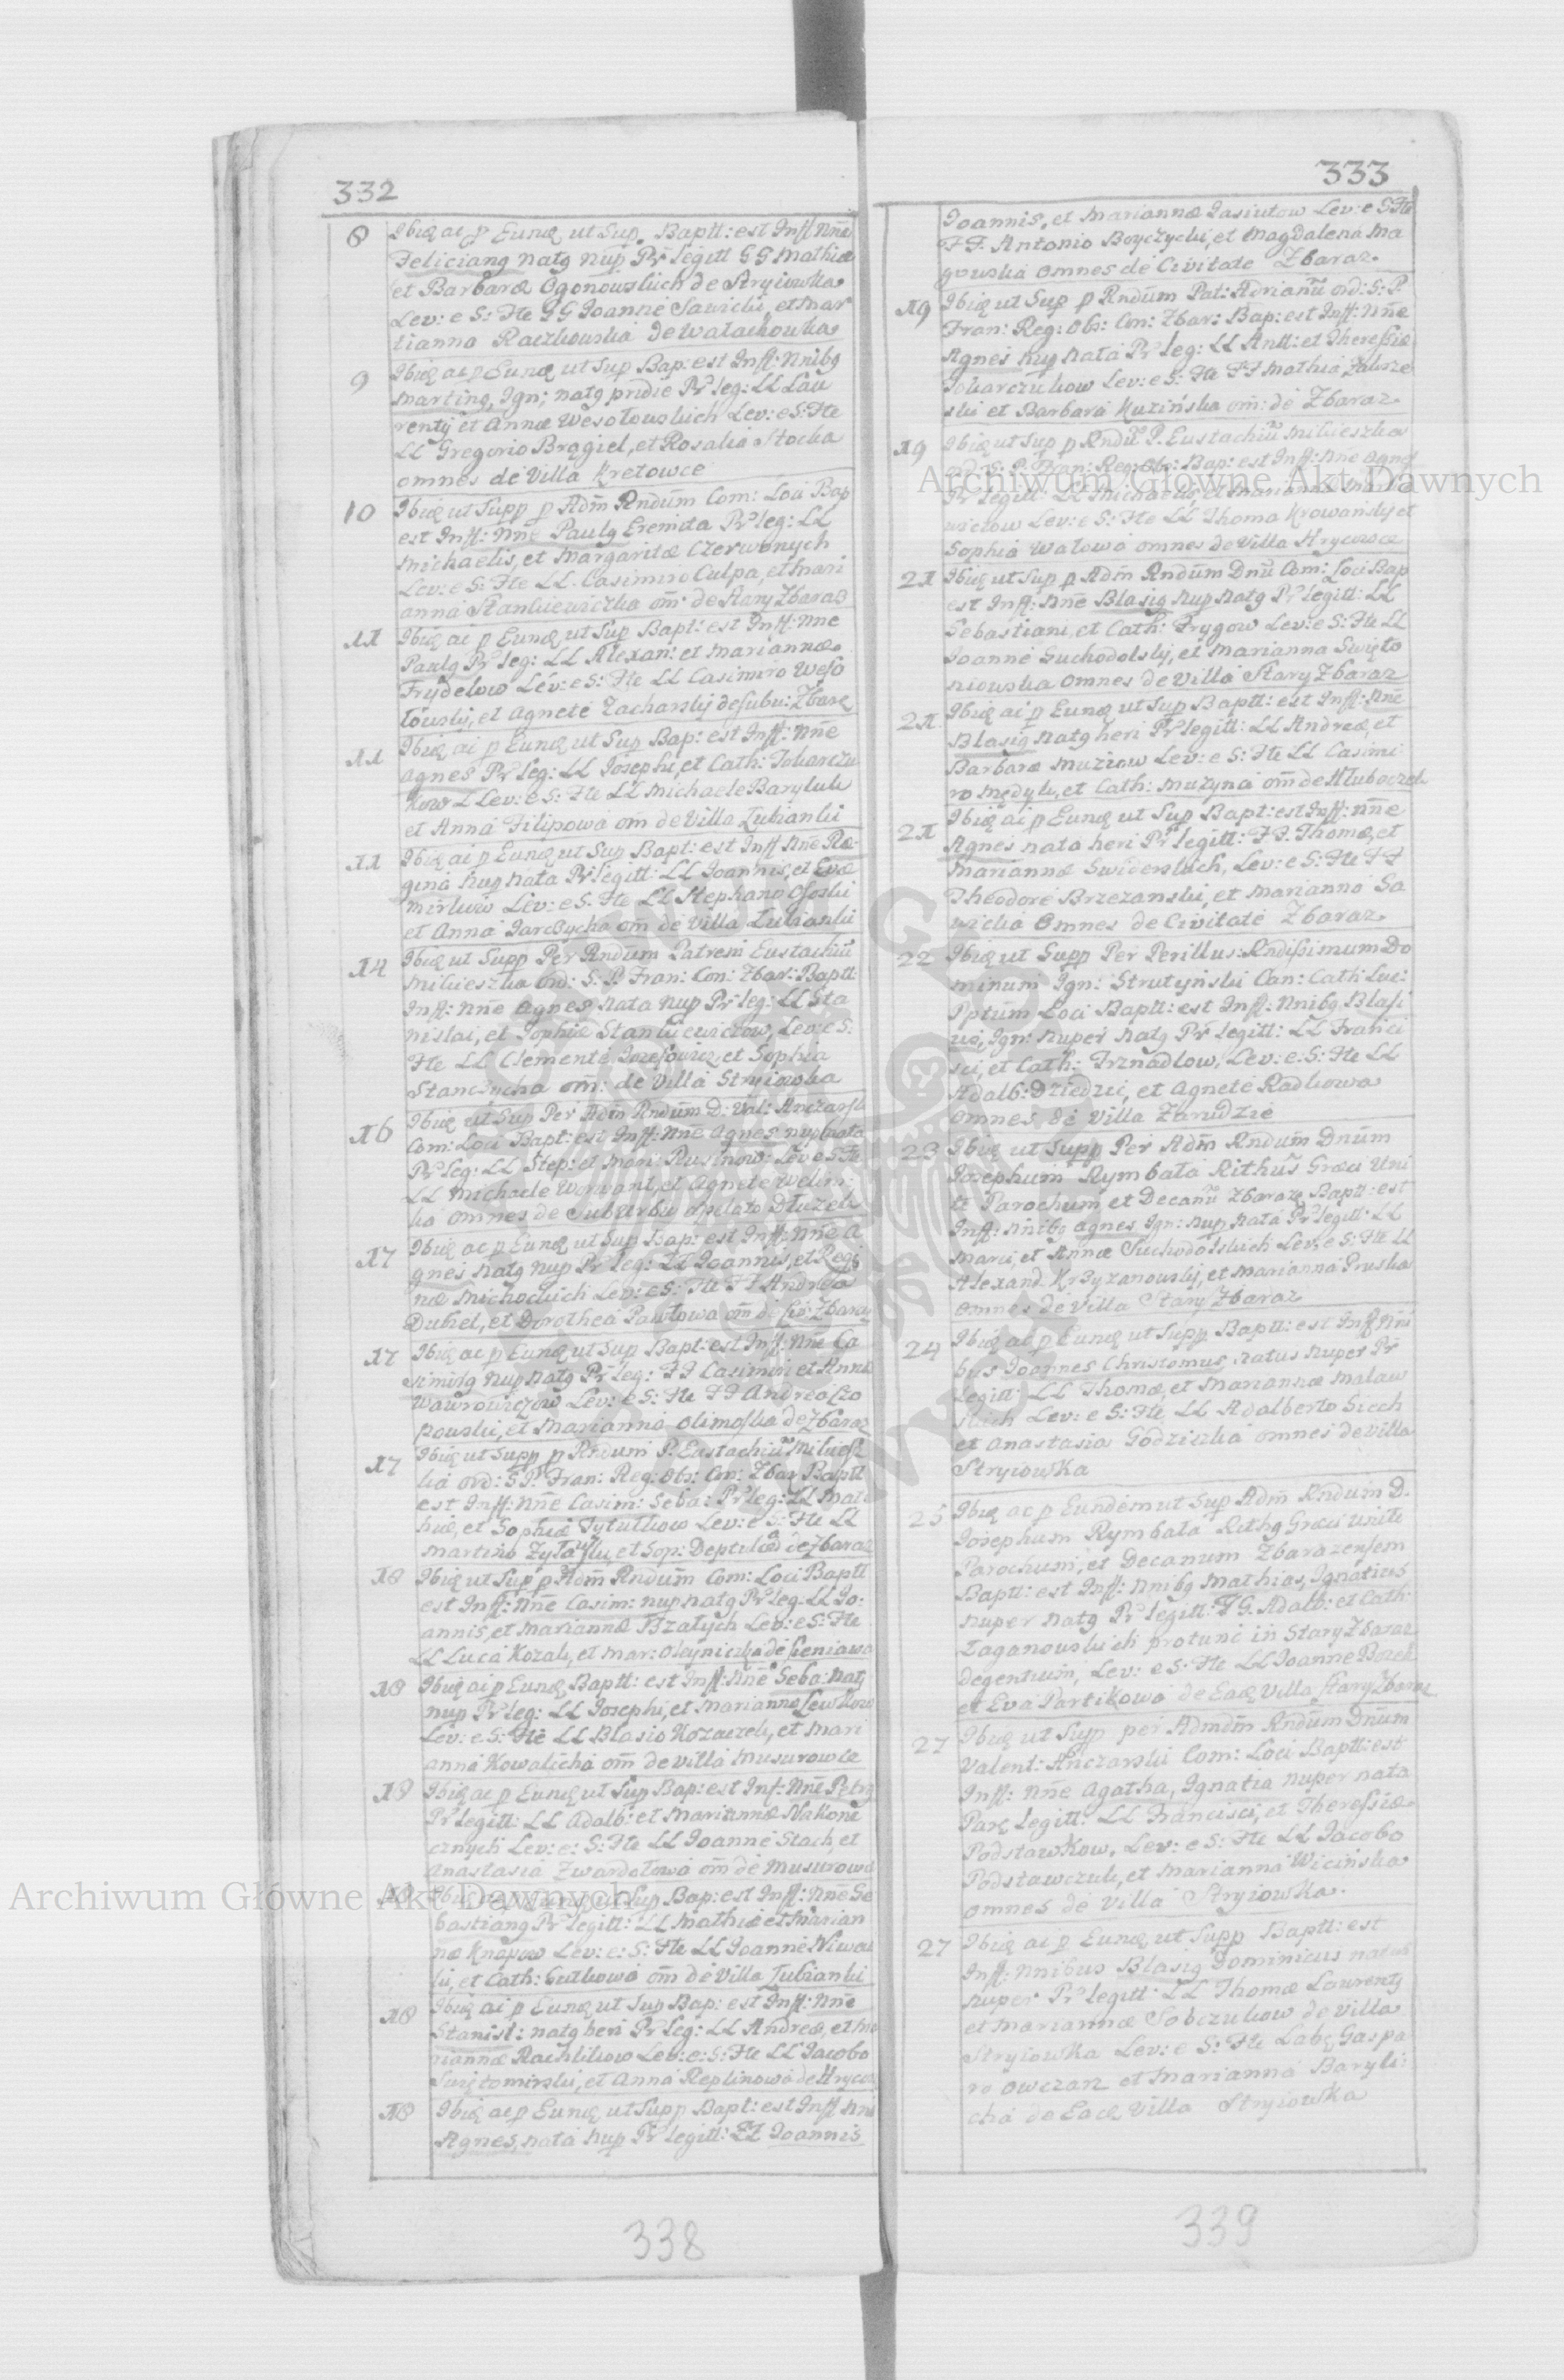 332
8 Ibidę ac p Eundę ut Sup. Baptt: est Inff Nnẽ
Feliciang natg nup Pr legitt GG Mathiæ
et Barbaræ Ogonowskich de Stryiowka
Lev: e S: Fte GG Joanne Sawicki, et Mar
tianna Raczkowska de Watachowka
9 Ibidę ac p Eundę ut Sup Bap: est Inff: Nnibg
Marting, Ign: natg pridie Pr leg: LL Lau
rentij et Annæ Wesołowskich Lev: e S: Fte
LL Gregorio Brągiel, et Rosalia Stocka
omnes de Villa Kretowce
10 Ibidę ut Supp p Adm Rndum Com: Loci Bap
est Inff: Nnẽ Paulg Eremita Pr leg: LL
Michaelis, et Margaritæ Czerwonych
Lev: e S: Fte LL. Casimiro Culpa, et Mari
anna Stankiewiczka om: de Stary Zbaraz
11 Ibidę ac p Eundę ut Sup Bapt: est Inff: Nne
Paulg Pr leg: LL Alexan: et Mariannæ
Frydelow Lev: e S: Fte LL Casimiro Weso
łowski, et Agnete Zacharskij de Subu: Zbarę
11 Ibidę ai p Eundę ut Sup Bap: est Inff: Nnẽ
Agnes Pr leg: LL Josephi, et Cath: Tokarczu
kow L Lev: e S: Fte LL Michaele Baryluk
et Anna Filipowa om de Villa Lubianki
11 Ibidę ai p Eundę ut Sup Bapt: est Inff Nnẽ Re-
gina nup nata Pr legitt: LL Joannis, et Evæ
Mirkuw Lev: e S: Fte LL Stephano Ososki
et Anna Jarczycha om de Villa Lubianki
14 Ibidę ut Supp Per Rndum Patrem Eustachiũ
Mikieszka Ord: S: P. Fran: Con: Zbar: Baptt:
Inff: Nnẽ Agnes nata nup Pr leg: LL Sta
nislai, et Sophiæ Stankiewiczow, Lev: e S:
Fte LL Clemente Jozefowicz et Sophia
Stanczycha om: de Villa Stryiowka
16 Ibidę ut Sup Per Adm Rndum D: Val: Anczarsk
Com: Loci Bapt: est Inff: Nnẽ Agnes nup nata
Pr leg: LL Step: et Mari: Rusinow: Lev e S: Fte
LL Michaele Worwant, et Agnete Welin:
ka omnes de SubUrbio apelato Dłuzek
17 Ibidę ac p Eundę ut Sup Bap: est Inff: Nnẽ A
gnes natg nup Pr leg: LL Joannis, et Regi
næ Michockich Lev: e S: Fte FF Andrea
Duhel, et Dorothea Pawłowa om de Civ: Zbaraz
17 Ibidę ac p Eundę ut Sup Bapt: est Inff: Nnẽ Ca
simirg nup natg Pr leg: FF Casimiri et Annæ
Wawrowiczow Lev: e S: Fte FF Andrea Czo
powski, et Marianna Olimoska de Zbaraz
17 Ibidę ut Supp p Rndum P: Eustachiũ Mikiesz
ka Ord: S P. Fran: Reg: Obs: Con: Zbar Baptt
est Inff: Nnẽ Casim: Seba: Pr leg: LL Mat
hiæ, et Sophiæ Tytutkow Lev: e S: Fte LL
Martino Zytaslu, et Sop: Deptulica de Zbaraz
18 Ibidę ut Sup p Adm Rndum Com: Loci Baptt
est Inff: Nnẽ Casim: nup natg Pr leg. LL Jo:
annis, et Mariannæ Bzałych Lev: e S: Fte
LL Luca Kozak, et Mar: Oleyniczka de Sieniawa
18 Ibidę ai p Eundę Baptt: est Inff: Nnẽ Seba: natg
nup Pr leg: LL Josephi, et Mariannæ Lewkow
Lev: e S: Fte LL Blasio Kozaczek, et Mari
anna Kowalicha om de Villa Musurowce
18 Ibidę ac p Eundę ut Sup Bap: est Inf: Nnẽ Petrg
Pr legitt: LL Adalb: et Mariannæ Nakone
cznych Lev: e: S: Fte LL Joanne Stach, et
Anastasia Zwardołowa om de Musurowce
18 Ibidę ac p Eundę ut Sup Bap: est Inff: Nnẽ Se
bastiang Pr legitt: LL Mathiæ et Marian
næ Knapow Lev: e: S: Fte LL Joanne Niwac
ki, et Cath: Gutkowa om de Villa Lubianki
18 Ibidę ai p Eundę ut Sup Bap: est Inff: Nnẽ
Stanisl: natg heri Pr leg: LL Andreæ, et Ma
riannæ Rachlikow Lev: e: S: Fte LL Jacobo
Swiętomirski, et Anna Replinowa de Hrycow
18 Ibidę ac p Eundę ut Supp Bapt: est Inff Nni
Agnes, nata nup Pr legitt: LL Joannis
338
333
Joannis, et Mariannæ Jasiutow Lev: e S: Fte
FF. Antonio Boyczycki, et Magdalena Ma
gowska omnes de Civitate Zbaraz.
19 Ibidę ut Sup p Rndum Pat: Adrianũ Ord: S: P.
Fran: Reg: Obs: Con: Zbar: Bap: est Inff: Nnẽ
Agnes nup nata Pr leg: LL Antt: et Theressiæ
Tokarczukow Lev: e S: Fte FF Mathia Zakrze
ski et Barbara Kuzińska om: de Zbaraz.
19 Ibidę ut Sup p Rndũ P. Eustachiũ Mikieszka
Ord: S: P. Fran: Reg: Obs: Bap: est Inff: Nnẽ Agnes
Pr legitt: LL Michaelis, et Mariannæ
wiczow Lev: e S: Fte LL Thoma Krowanskij et
Sophia Watowa omnes de Villa Hrycowce
21 Ibidę ut Sup p Adm Rndum Dnũ Com: Loci Bap
est Inff: Nnẽ Blasig nup natg Pr legitt: LL
Sebastiani, et Cath: Frygow Lev: e S: Fte LL
Joanne Suchodolskij, et Marianna Swięto
niowska omnes de Villa Stary Zbaraz
21 Ibidę ai p Eundę ut Sup Baptt: est Inff: Nnẽ
Blasig natg heri Pr legitt: LL Andreæ, et
Barbaræ Muziow Lev: e S: Fte LL Casimi
ro Mędyk, et Cath: Muzyna om de Hłuboczek
21 Ibidę ai p Eundę ut Sup Bapt: est Inff: Nnẽ
Agnes nata heri Pr legitt: FF. Thomæ, et
Mariannæ Swiderskich, Lev: e S: Fte FF
Theodore Brzezanski, et Marianna Sa
wicka Omnes de Civitate Zbaraz
22 Ibidę ut Supp Per Perillus: Rndissimum Do
minum Ign: Strutyński Can: Cath: Luc:
Pptum Loci Baptt: est Inff: Nnibg Blasi
us, Ign: nuper natg Pr legitt: LL Franci
sci, et Cath: Frznadlow, Lev: e: S: Fte LL
Adalb: Dziedzic, et Agnete Radkowa
omnes de Villa Zarudzie
23 Ibidę ut Supp Per Adm Rndum Dnum
Josephum Rymbała Rithus Græci Uni
te Parochum et Decanũ Zbaraz Baptt: est
Inff: Nnibg Agnes Ign: nup nata Pr legitt: LL
Marci, et Annæ Suchodolskich Lev: e S: Fte LL
Alexand. Krzyzanowskij, et Marianna Pruska
omnes de Villa Stary Zbaraz
24 Ibidę ac p Eundę ut Supp Baptt: est Inff Nni
bus Joannes Christomus natus nuper Pr
legitt: LL Thomæ, et Mariannæ Malaw
skich Lev: e S: Fte LL Adalberto Siech
et Anastasia Godziszka omnes de Villa
Stryiowka
25 Ibidę ac p Eundem ut Sup Adm Rndum D.
Josephum Rymbała Rithg Græci Unite
Parochum, et Decanum Zbarazensem
Baptt: est Inff: Nnibg Mathias, Ignatius
nuper natg Pr legitt: FG. Adalb: et Cath:
Łaganowskich protunc in Stary Zbaraz
degentium, Lev: e S: Fte LL Joanne Bozek
et Eva Partikowa de Eadę Villa Stary Zbaraz
27 Ibidę ut Supp per Admdm Rndum Dnum
Valent: Anczarski Com: Loci Baptt: est
Inff: Nnẽ Agatha, Ignatia nuper nata
Parę legitt: LL Francisci, et Theressiæ
Podstawkow, Lev: e S: Fte LL Jacobo
Podstawczuk, et Marianna Wicińska
omnes de Villa Stryiowka.
27 Ibidę ac p Eundę ut Supp Baptt: est
Inff: Nnibus Blasig Dominicus natus
nuper Pr legitt: LL Thomæ Laurentij
et Mariannæ Sobczukow de Villa
Stryiowka Lev: e S: Fte Labę Gaspa
ro Owczarz et Marianna Baryli:
cha de Eadę Villa Stryiowka
339
Archiwum Główne Akt Dawnych
Archiwum Główne Akt Dawnych